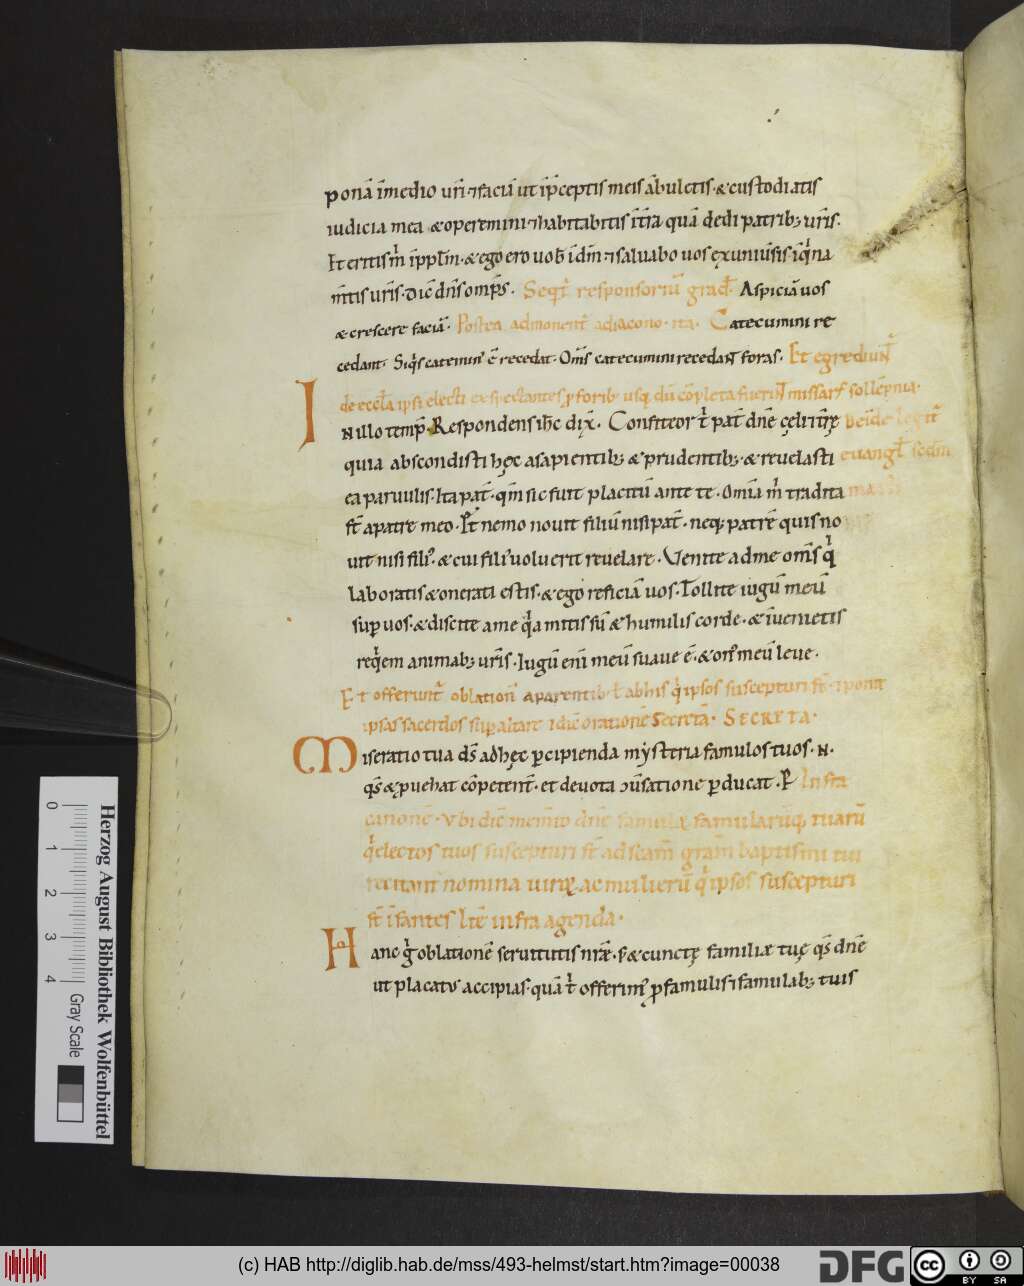 ponā īmedio urī ⁊faciā ut īp̄ceptis meis ābuletis·&custodiatis
iudicia mea &operemini·⁊habitabitis īt̄ra quā dedi patrib; ur̄is.
Et eritis m̄ īpplm̄·&ego ero uob̄ īdm̄ ⁊saluabo uos ex uniuersis īq̄na
mtīs ur̄is·Dic̄ dn̄s omp̄s. Seqt̄ responsoriū grad̄. Aspiciā uos
&crescere faciā. Postea admonent̄ adiacono·ita. Catecumini re
cedant. Siq̄s catemin' ē recedat. Om̄s catecumini recedaNt foras. Et egrediuNt̄
de eccla ipsi electi exspectantes p̄forib; usq; dū cōpleta fueriNt missarū sollēpnia.
IN illo temp̄. Respondens ih̄c dix̄. Confiteor t̄ pat̄ dn̄e cęli ⁊t̄rę Deīde legit̄
quia abscondisti hęc asapientib; &prudentib;·&reuelasti euangl̄ scdm̄
ea paruulis·Ita pat̄·qm̄ sic fuit placitū ante te. Om̄ia m̄ tradita
st̄ apatre meo. Et nemo nouit filiū nisi pat̄·neq; patrē quis no
uit nisi fili'·&cui fili' uoluerit reuelare. Venite adme om̄s q̄
laboratis &onerati estis·&ego reficiā uos. Tollite iugū meū
sup uos·&discite ame q̄a mitis sū &humilis corde·&īuenietis
req̄em animab; ur̄is. Iugū enī meū suaue ē·&on' meū leue.
Et offerunt̄ oblation̄ aparentib; t̄ abhis q̄ ipsos suscepturi st̄·⁊ponit
ipsas sacerdos sup altare ⁊dic̄ orationē Secretā. SECRETA.
Miseratio tua ds̄ adhęc p̄cipienda mysteria famulos tuos·N.
qs̄ &p̄uehat cōpetent̄·et deuota ɔuersatione p̄ducat. P̄ Infra
canonē·Vbi dic̄ memto dn̄e famulor̄ famularūq; tuarū
q̄ electos tuos suscepturi st̄ ad scam̄ gram̄ baptismi tui
recitant̄ nomina uirorꝝ ac mulierū q̄ ipsos suscepturi
st̄ īfantes It̄e infra agenda.
Hanc ḡ oblationē seruitutis nræ·s̄&cunctę familiæ tuę qs̄ dn̄e
ut placatus accipias·quā t̄ offerim' p̄famulis ⁊famulab; tuis
0 1 2 3 4
Gray Scale
Herzog August Bibliothek Wolfenbüttel
(c) HAB http://diglib.hab.de/mss/493-helmst/start.htm?image=00038
DFG
cc BY SA